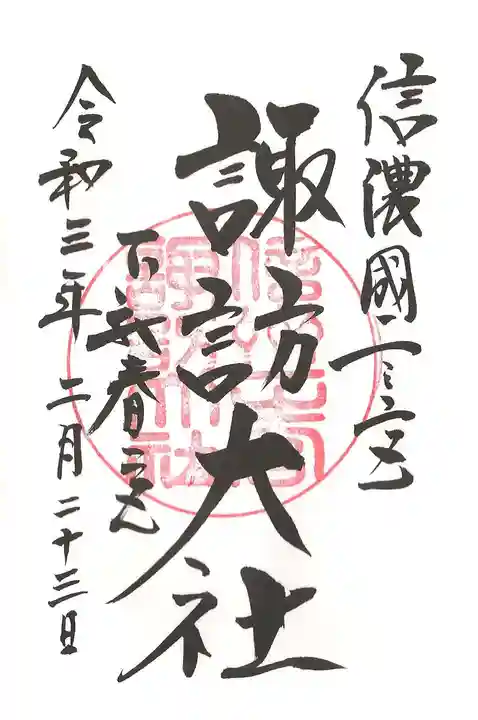 信濃國一之宮
諏訪大社
下社春宮
令和三年 二月二十三日